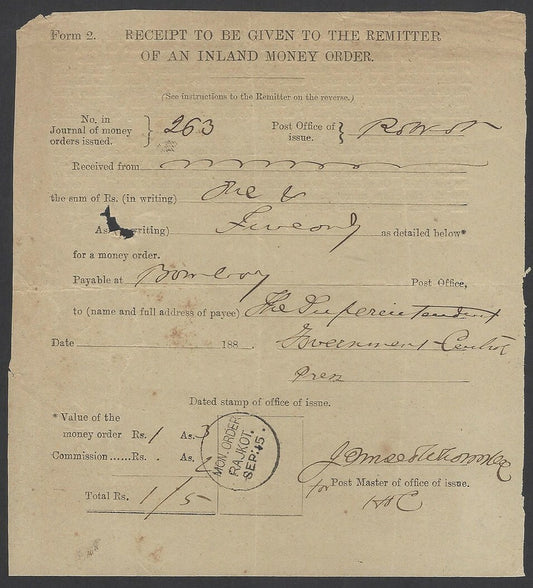 Form 2. RECEIPT TO BE GIVEN TO THE REMITTER
OF AN INLAND MONEY ORDER.
(See instructions to the Remitter on the reverse.)
No. in
Journal of money
orders issued. } 263 Post Office of
issue. }
Received from
the sum of Rs. (in writing) One &
As. (writing) as detailed below*
for a money order.
Payable at Bombay Post Office,
to (name and full address of payee) The Superintendent
Date 188 . Government Central
Press
Dated stamp of office of issue.
* Value of the
money order Rs. 1 As. 3
Commission ......Rs. . As.
Total Rs. 1/5
MON. ORDER
RAJKOT.
SEP: 15
for Post Master of office of issue.